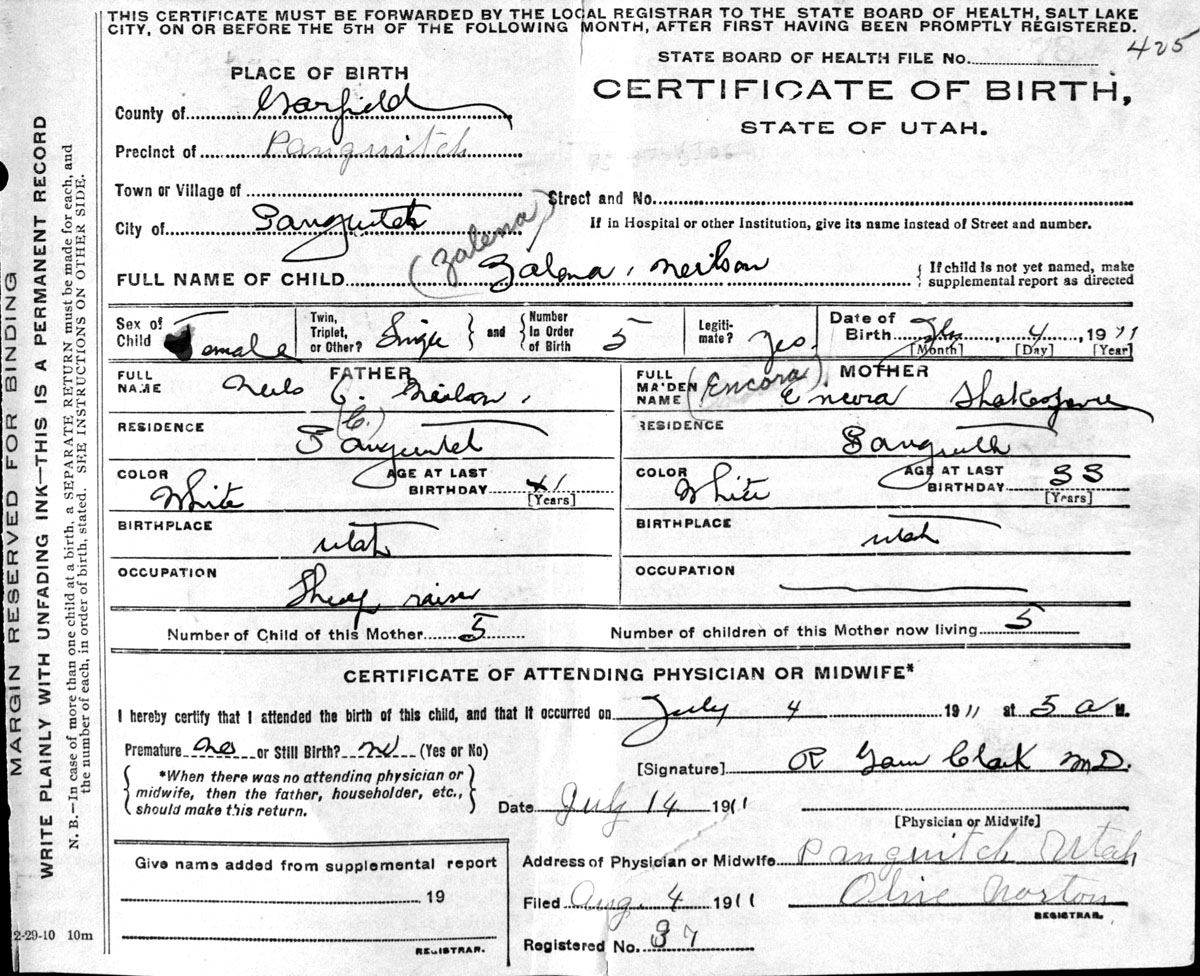 THIS CERTIFICATE MUST BE FORWARDED BY THE LOCAL REGISTRAR TO THE STATE BOARD OF HEALTH, SALT LAKE
CITY, ON OR BEFORE THE 5TH OF THE FOLLOWING MONTH, AFTER FIRST HAVING BEEN PROMPTLY REGISTERED.
425
STATE BOARD OF HEALTH FILE No.
PLACE OF BIRTH
CERTIFICATE OF BIRTH,
STATE OF UTAH.
County of Garfield
Precinct of Panguitch
Town or Village of
Street and No.
City of Panguitch
If in Hospital or other Institution, give its name instead of Street and number.
(Zalena)
FULL NAME OF CHILD Zalena Neilson
If child is not yet named, make
supplemental report as directed
Sex of Child Female
Twin, Triplet, or Other? Single and Number In Order of Birth 5
Legiti-mate? Yes.
Date of Birth July 4, 1911
[Month] [Day] [Year]
FATHER
FULL NAME Neils C. Neilson
(C.)
RESIDENCE Panguitch
COLOR White
AGE AT LAST BIRTHDAY 41
[Years]
BIRTHPLACE Utah
OCCUPATION Sheep raiser
MOTHER
FULL MAIDEN NAME (Encora) Encora Shakespeare
RESIDENCE Panguitch
COLOR White
AGE AT LAST BIRTHDAY 33
[Years]
BIRTHPLACE Utah
OCCUPATION
Number of Child of this Mother 5
Number of children of this Mother now living 5
CERTIFICATE OF ATTENDING PHYSICIAN OR MIDWIFE*
I hereby certify that I attended the birth of this child, and that it occurred on July 4 1911 at 5 a M.
Premature no or Still Birth? no (Yes or No)
*When there was no attending physician or
midwife, then the father, householder, etc.,
should make this return.
[Signature] R Garn Clark M.D.
Date July 14 1911
[Physician or Midwife]
Give name added from supplemental report
19
REGISTRAR.
Address of Physician or Midwife Panguitch Utah
Filed Aug. 4 1911
Olive Norton
REGISTRAR.
Registered No. 37
MARGIN RESERVED FOR BINDING
WRITE PLAINLY WITH UNFADING INK—THIS IS A PERMANENT RECORD
N. B.—In case of more than one child at a birth, a SEPARATE RETURN must be made for each, and
the number of each, in order of birth, stated. SEE INSTRUCTIONS ON OTHER SIDE.
2-29-10 10m